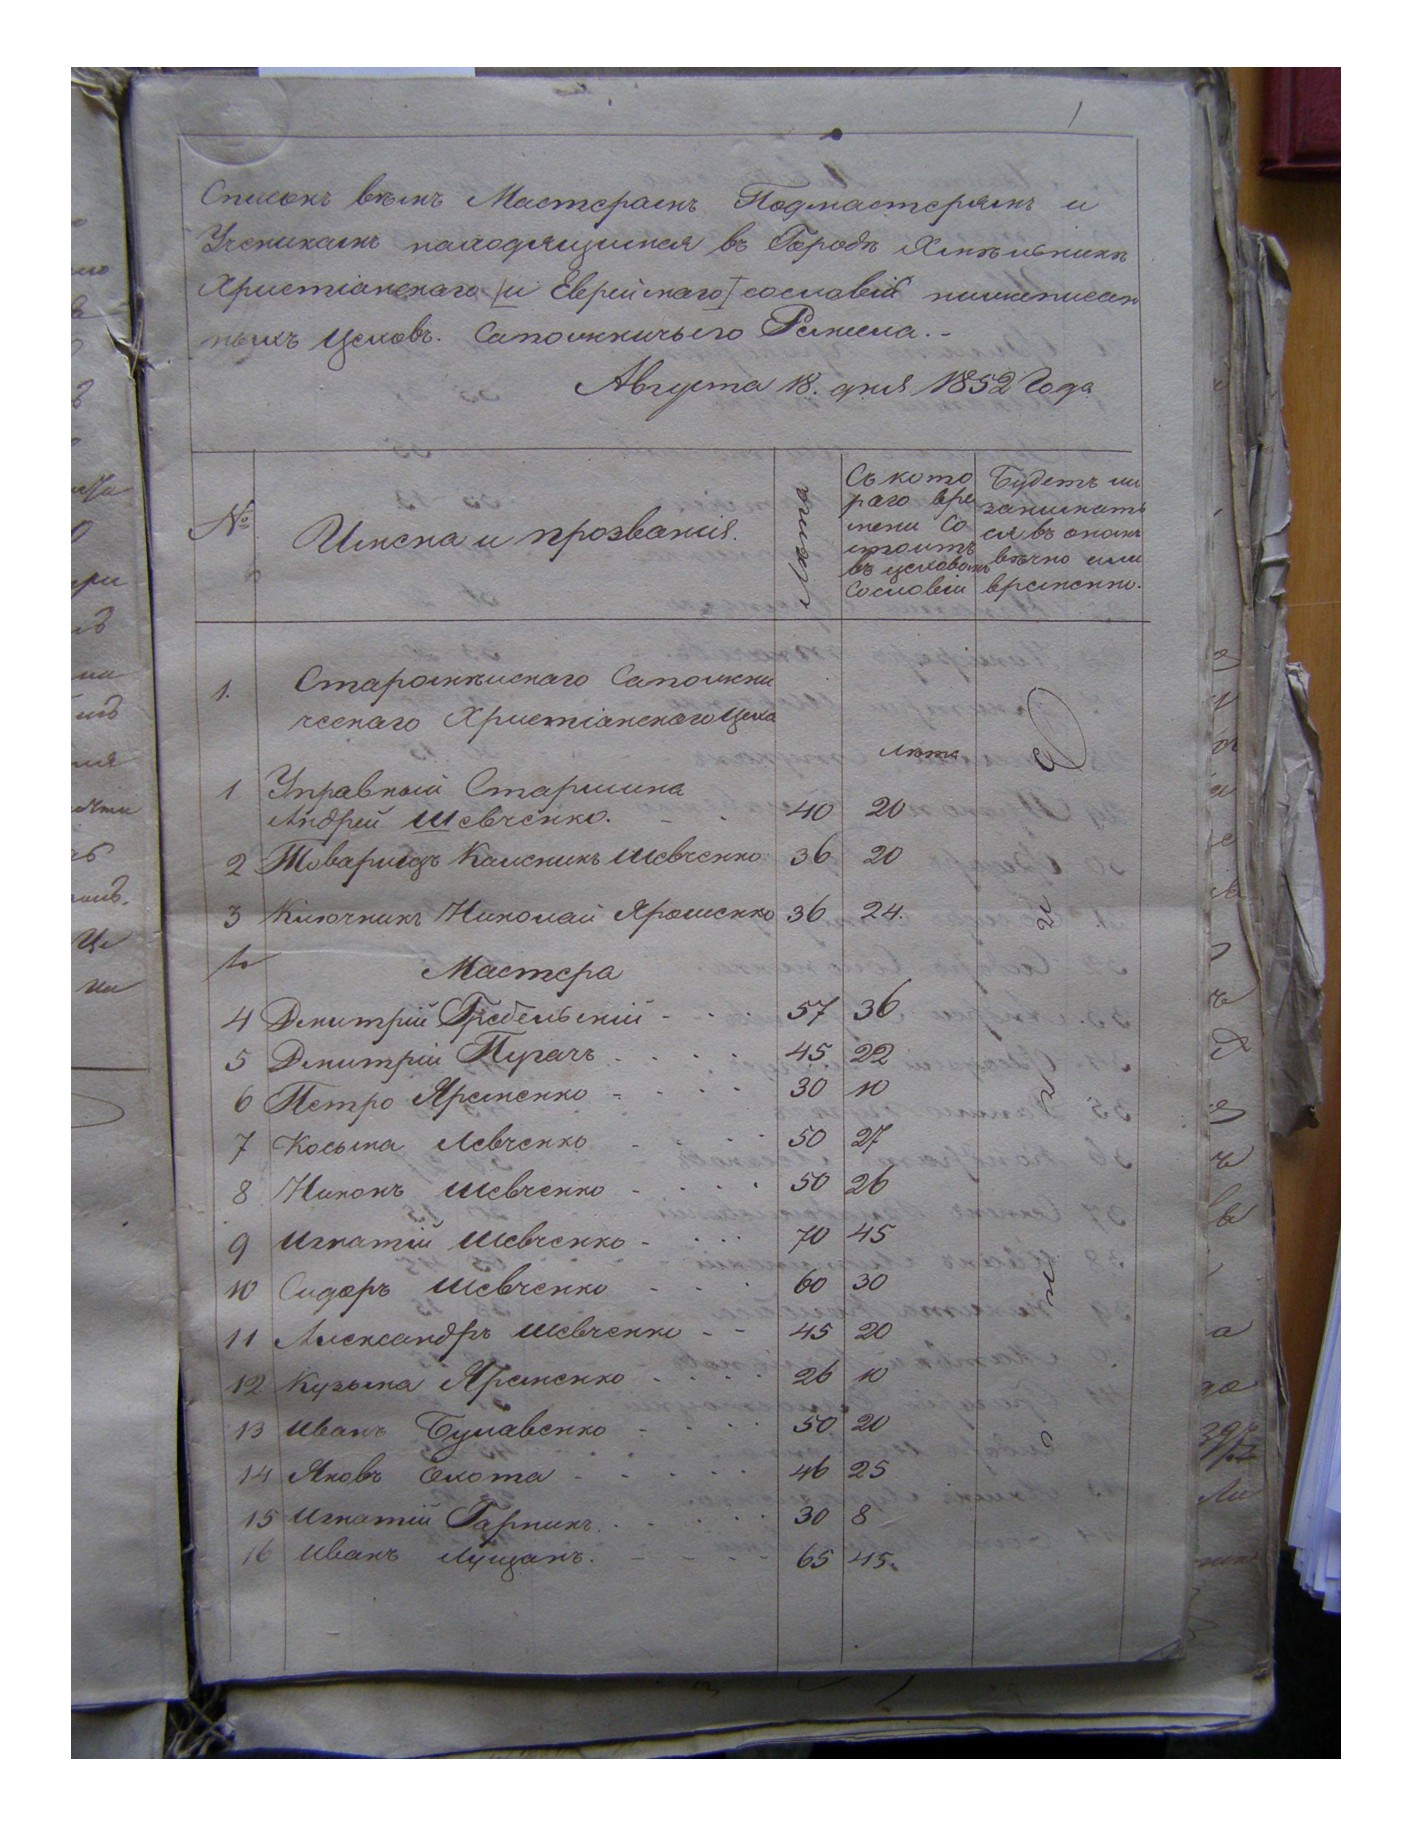 1
Списокъ всѣмъ Мастерамъ Подмастерямъ и
Ученикамъ находящимся въ Городѣ Хмѣльникѣ
Христіанскаго и Еврейскаго сословій нижеписан
ныхъ Цеховъ. Сапожничьего Ремесла. –
Августа 18. дня 1852 Года
№
Имена и прозванія.
Лѣта
Съ кото
раго вре
мени со
стоитъ
въ цеховомъ
Сословіи
Будетъ ли
заниматъ
ся въ ономъ
вѣчно или
временно.
1. Старомѣйскаго Сапожни
ческаго Христіанскаго Цеха
лѣта
1 Управный Старшина
Андрей Шевченко. 40 20
2 Товарищъ Калиникъ Шевченко 36 20
3 Ключникъ Николай Яременко 36 24.
Мастера
4 Дмитрій Гребельскій 57 36
5 Дмитрій Пугачъ 45 22
6 Петро Яременко 30 10
7 Косьма Левченко 50 27
8 Никонъ Шевченко 50 26
9 Игнатій Шевченко 70 45
10 Сидоръ Шевченко 60 30
11 Александръ Шевченко 45 20
12 Кузьма Яременко 26 10
13 Иванъ Булавенко 50 20
14 Яковъ Охота 46 25
15 Игнатій Гарникъ 30 8
16 Иванъ Лущанъ. 65 45.